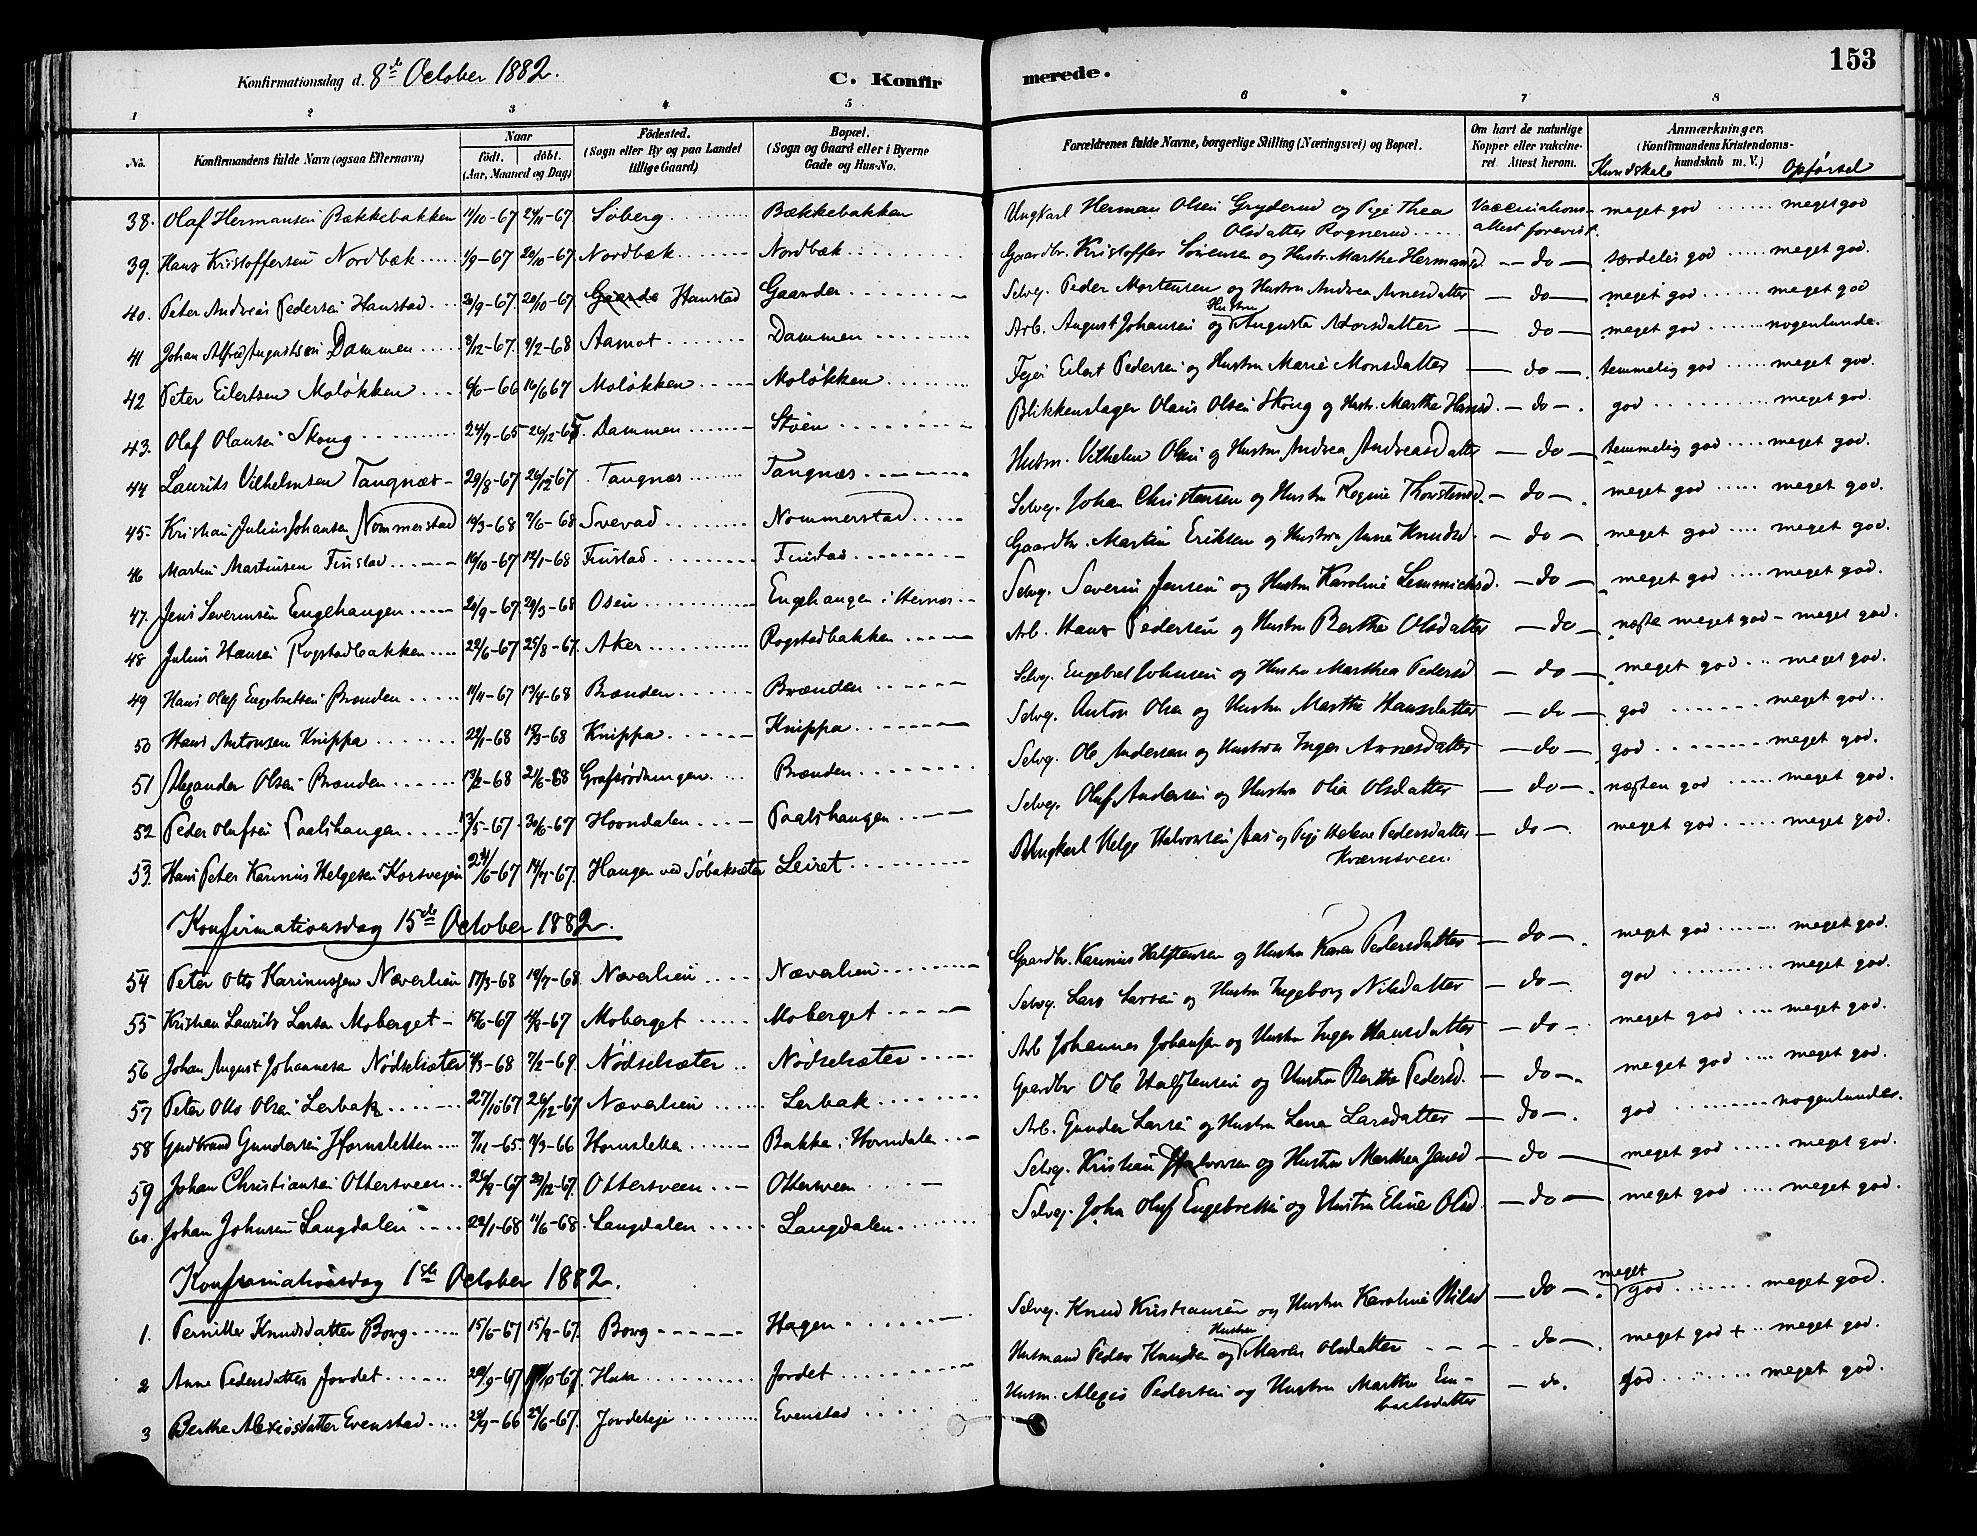 153
Konfirmationsdag d. 8de October 1882. C. Konfirmerede.
1 2 3 4 5 6 7 8
No. Konfirmandens fulde Navn (ogsaa Efternavn) Naar födt. döbt. (Aar, Maaned og Dag) Födested. (Sogn eller By og paa Landet tillige Gaard) Bopæl. (Sogn og Gaard eller i Byerne Gade og Hus-No. Forældrenes fulde Navne, borgerlige Stilling (Næringsvei) og Bopæl. Om havt de naturlige Kopper eller vakcineret Attest herom. Anmærkninger. (Konfirmandens Kristendomskundskab m. V.) Kundskab Opförsel
38. Olaf Hermansen Bækkebakken 24/11-67 Söberg Bækkebakken Ungkarl Herman Olsen Gryderud og Pige Thea Olsdatter Rognerud Vaccinationsattest forevist. meget god meget god
39. Hans Kristoffersen Nordbæk 1/9-67 20/10-67 Nordbæk Nordbæk Gaardbr. Kristoffer Sörensen og Hustr. Marthe Hermansd. do særdeles god meget god.
40. Peter Andreas Pedersen Hanstad 20/9-67 20/10-67 Hanstad Gaarder Selvej. Peder Mortensen og Hustru Andrea Arnesdatter do meget god meget god
41 Johan Alfred Augustsen Dammen 9/2-68 Aamot Dammen Arb. August Johansen og Hustru Augusta do meget god nogenlunde.
42 Peter Eilertsen Moløkken 6/6-66 16/6 67 Moløkken Moløkken Eilert Pedersen og Hustru Marie Monsdatter do temmelig god meget god.
43. Olaf Olausen Skong 24/9-65 Dammen Stöen Blikkenslager Olaus Olsen Skong og Hustr. Marthe Hansd. do god meget god.
44 Laurits Vilhelmsen Tangnæs 29/8-67 26/12-67 Tangnæs Tangnæs Husm. Vilhelm Olsen og Hustru Andrea Andreasdatter do temmelig god meget god
45 Kristian Julius Johansen Nommerstad 7/6-68 Svevad Nommerstad Selvej. Johan Christensen og Hustru Regine Thorstensd. do meget god meget god.
46 Martin Martinsen Finstad 12/1-68 Finstad Finstad Gaardbr. Martin Eriksen og Hustru Anne Knudsd. do meget god meget god.
47. Jens Severinsen Engehaugen 20/9-67 29/3-68 Osen Engehaugen i Severin Jensen og Hustru Karoline do meget god meget god.
48 Julius Hansen Rogstadbakken 22/6-67 25/8-67 Aker Rogstadbakken Arb. Hans Pedersen og Hustru Berthe Olsdatter do næsten meget god meget god.
49 Hans Olaf Engebretsen Brænden 11/11-67 13/4-68 Brænden Brænden Selvej. Engebret Johnsen og Hustru Marthea Pedersd do meget god meget god.
50 Hans Antonsen Knippa 22/1-68 Knippa Knippa Selvej. Anton Olsen og Hustru Marthe Hansdatter do god meget god.
51 Alexander Olsen Brænden 13/2-68 21/6-68 Brænden Selvej. Ole Andersen og Hustru Inger Arnesdatter do god meget god.
52 Peder Olufsen Paalshaugen 13/5-67 30/6-67 Horndalen Paalshaugen Selvej. Oluf Andersen og Hustru Olia Olsdatter do næsten god meget god.
53. Hans Peter Karinius Helgesen Korsvejen 24/6-67 14/7-67 Haugen ved Söbaksæter Leiret Ungkarl Helge Halvorsen Aas og Pige Helene Pedersdatter Kværnsveen do meget god meget god.
Konfirmationsdag 15de October 1882.
54 Peter Otto Karinussen Næverlien 17/3-68 19/7-68 Næverlien Næverlien Gaardbr. Karinius Halstensen og Hustru Karen Pedersdatter do meget god meget god.
55 Kristian Laurits Larsen Moberget Moberget Moberget Selvej. Lars Larsen og Hustru Ingeborg Nilsdatter do god meget god.
56 Johan August Johannesen Nödselsæter 7/2-69 Nödselsæter Nödselsæter Arb Johannes Johansen og Hustru Inger Hansdatter do meget god meget god.
57 Peter Otto Olsen Lerbak 27/10-67 26/12-67 Næverlien Lerbak Gaardbr Ole Halstensen og Hustru Berthe Pedersd. do meget god meget god.
58 Gudbrand Gundersen Hornsletten 7/11-65 Hornsletten Bakke i Horndalen Arb. Gunder Larsen og Hustru Lena Larsdatter do god nogenlunde.
59 Johan Christiansen Ottersveen 26/9-67 29/12-67. Ottersveen Ottersveen Selvej. Kristian Halvorsen og Hustru Marthea Jensd do meget god meget god.
60. Johan Johnsen Langdalen 22/1-68 11/6-68 Langdalen Langdalen Selvej. John Oluf Engebretsen og Hustru Eline Olsd do meget god meget god.
Konfirmationsdag 1ste October 1882.
1. Pernille Knudsdatter Borg 15/6-67 15/9-67 Borg Hagen Selvej. Knud Kristiansen og Hustru Karoline Nilsd do meget god meget god.
2 Anne Pedersdatter Jordet 20/9-67 Jordet Husmand Peder Knudsen og Hustru Maren Olsdatter do meget god + meget god.
3 Berthe Alexiosdatter Evenstad Jordeteje Evenstad Husm. Alexis Pedersen og Hustru Marthe Embretsdatter do. god meget god.